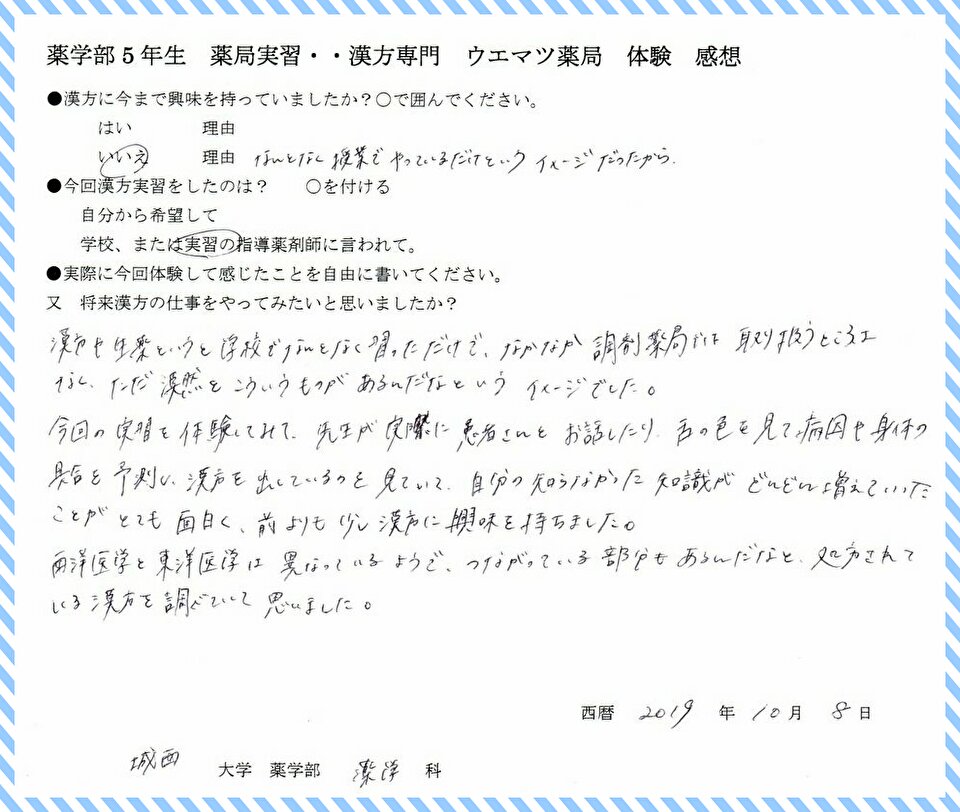 薬学部5年生 薬局実習・・漢方専門 ウエマツ薬局 体験 感想
●漢方に今まで興味を持っていましたか？○で囲んでください。
はい 理由
いいえ 理由 なんとなく授業でやっているだけというイメージだったから.
●今回漢方実習をしたのは？ ○を付ける
自分から希望して
学校、または実習の指導薬剤師に言われて。
●実際に今回体験して感じたことを自由に書いてください。
又 将来漢方の仕事をやってみたいと思いましたか？
漢方や生薬というと学校でなんとなく習っただけで、なかなか調剤薬局では取り扱うところは
なし、ただ漠然とこういうものがあるんだなというイメージでした。
今回の実習を体験してみて、先生が実際に患者さんとお話したり、舌の色を見て病因や身体の
具合を予測し、漢方を出しているのを見ていて、自分の知らなかった知識がどんどん増えていった
ことがとても面白く、前よりも少し漢方に興味を持ちました。
西洋医学と東洋医学は異なっているようで、つながっている部分もあるんだなと、処方されて
いる漢方を調べていて思いました。
西暦 2019 年 10月 8日
城西 大学 薬学部 薬学 科